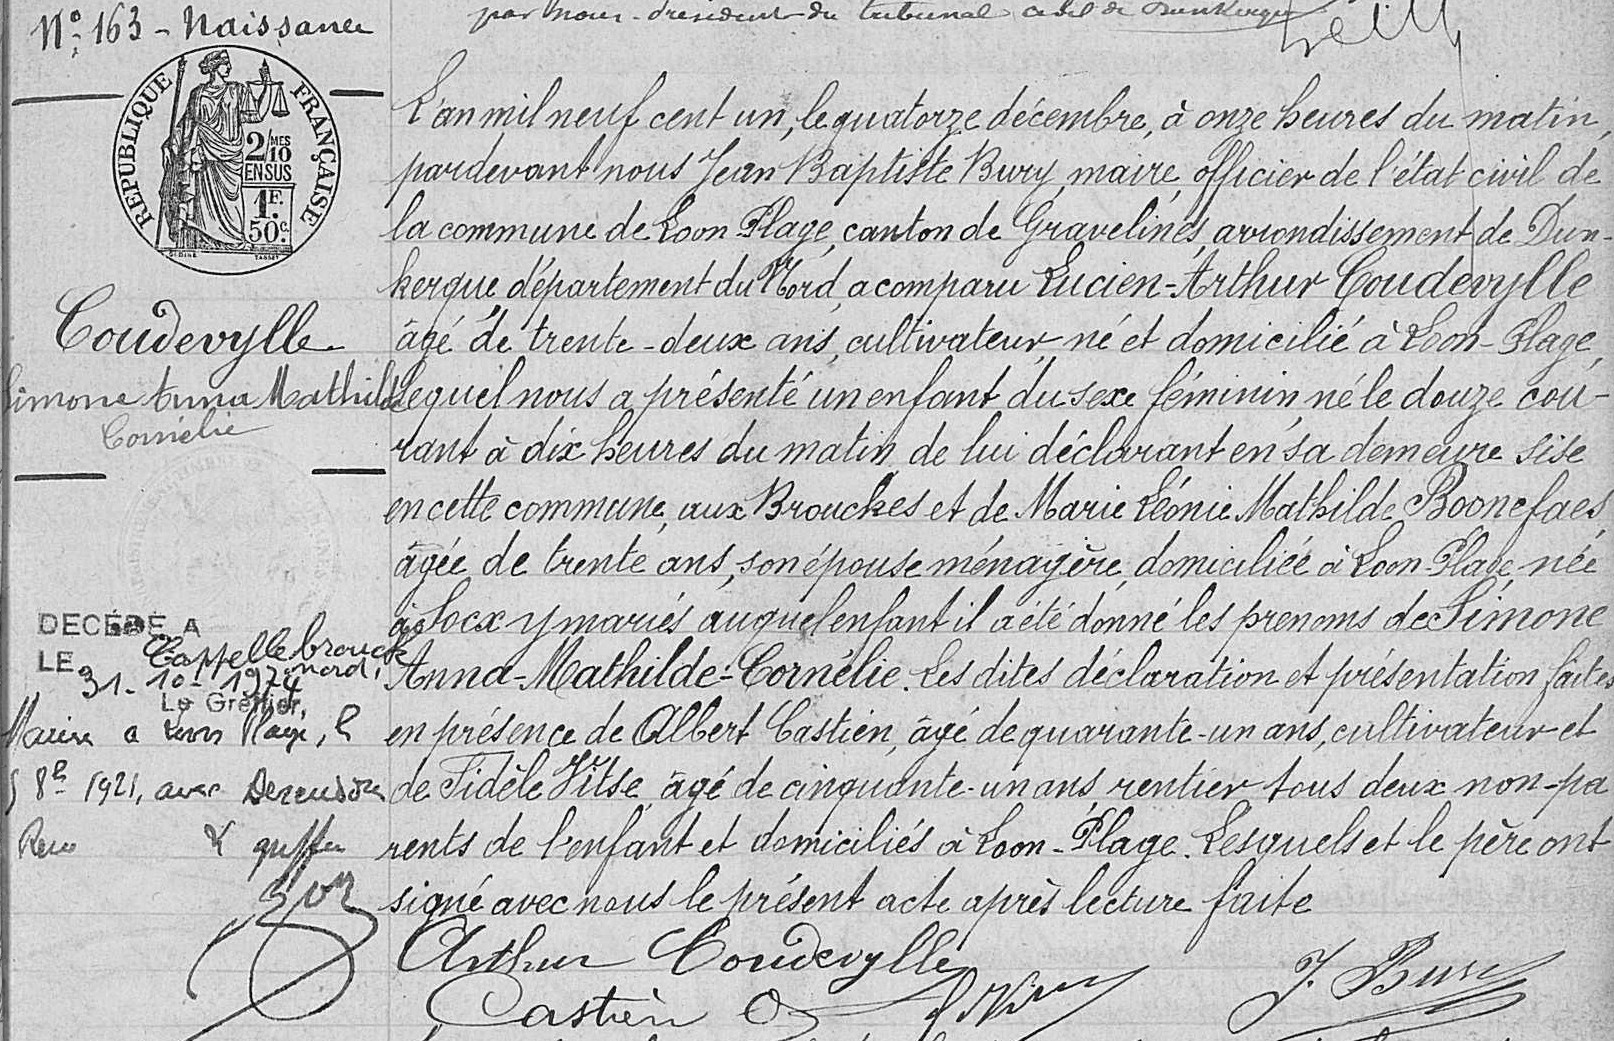 par nous président du tribunal civil de Dunkerque
N° 163 - Naissance
RÉPUBLIQUE FRANÇAISE
2/10 MES
EN SUS
1F.
50c.
Coudevylle
Simone Anna Mathilde
Cornélie
L'an mil neuf cent un, le quatorze décembre, à onze heures du matin,
pardevant nous Jean Baptiste Bury, maire, officier de l'état civil de
la commune de Loon Plage, canton de Gravelines, arrondissement de Dun-
kerque, département du Nord, a comparu Lucien-Arthur Coudevylle
âgé de trente-deux ans, cultivateur, né et domicilié à Loon-Plage,
lequel nous a présenté un enfant du sexe féminin, né le douze cou-
rant à dix heures du matin, de lui déclarant en sa demeure sise
en cette commune, aux Brouckes et de Marie Léonie Mathilde Boonefaes,
âgée de trente ans, son épouse ménagère, domiciliée à Loon-Plage, née
à Socx y mariés auquel enfant il a été donné les prenoms de Simone
Anna-Mathilde-Cornélie. Les dites déclaration et présentation faites
en présence de Albert Castien, âgé de quarante-un ans, cultivateur et
de Fidèle Vitse, âgé de cinquante-un ans rentier tous deux non-pa
rents de l'enfant et domiciliés à Loon-Plage. Lesquels et le père ont
signé avec nous le présent acte après lecture faite
DECEDE A Cappellebrouck
nord,
LE 31-10-1974
Le Greffier,
Mariée à Loon Plage, le
5 8bre 1921, avec
René
Le greffier
Arthur Coudevylle
Castien
J. Bury